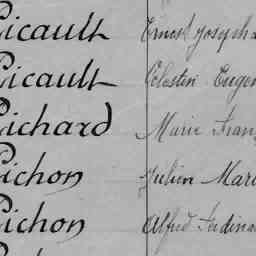 Picault Ernest Joseph
Picault Célestin Eugen
Pichard Marie Franç
Pichon Julien Mari
Pichon Alfred Ferdina